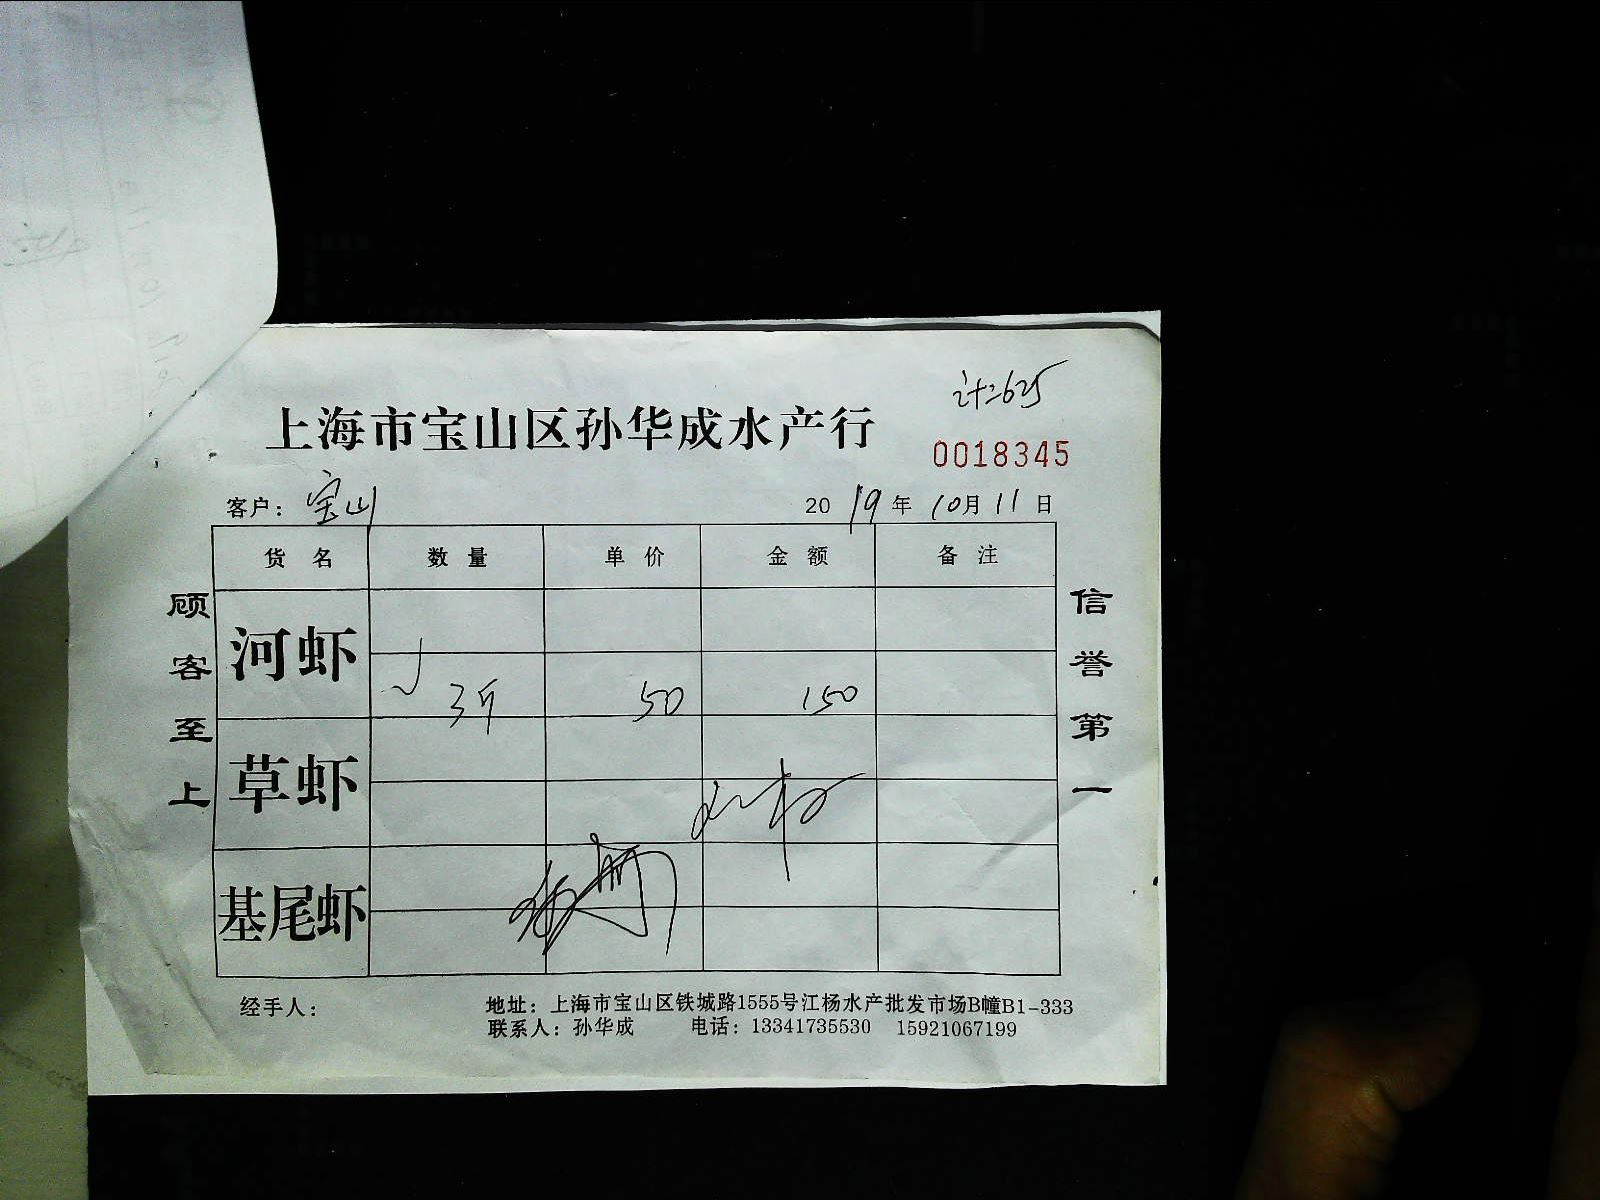 计:625
上海市宝山区孙华成水产行
0018345
客户: 宝山 2019年10月11日
货名 数量 单价 金额 备注
河虾 3斤 50 150
草虾
基尾虾
顾客至上
信誉第一
经手人: 地址: 上海市宝山区铁城路1555号江杨水产批发市场B幢B1-333
联系人: 孙华成 电话: 13341735530 15921067199